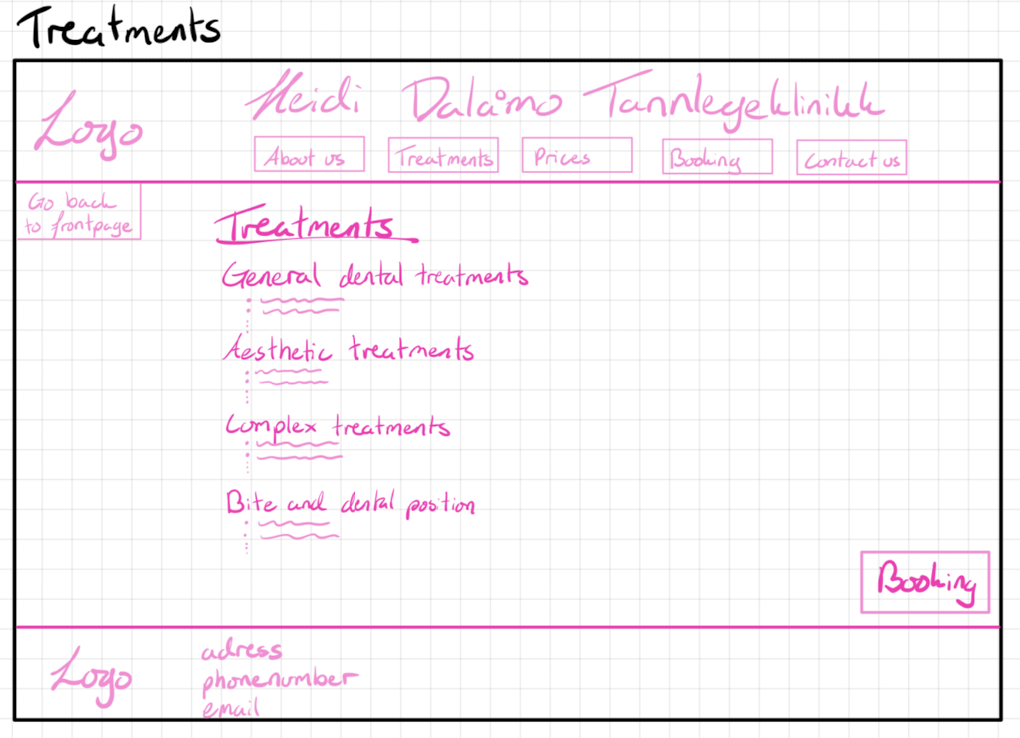 Treatments
Logo
Heidi Dalåmo Tannlegeklinikk
About us
Treatments
Prices
Booking
Contact us
Go back
to frontpage
Treatments
General dental treatments
Aesthetic treatments
Complex treatments
Bite and dental position
Booking
Logo
adress
phonenumber
email